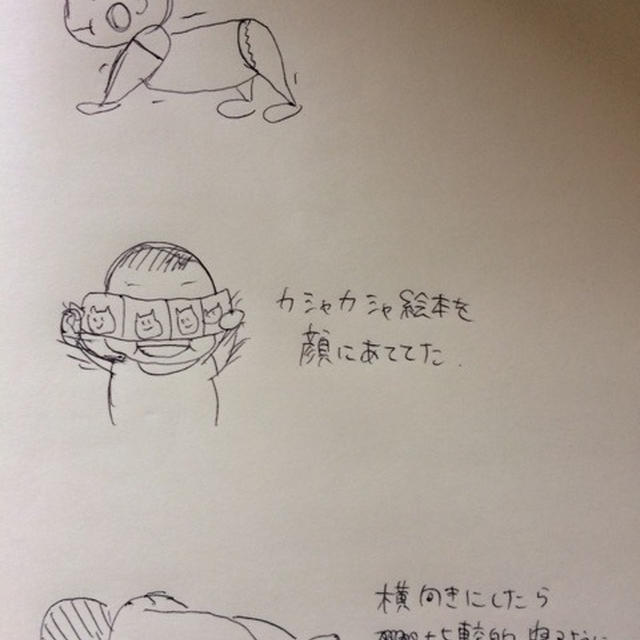 カシャカシャ絵本を
顔にあててた.
横向きにしたら
比較的